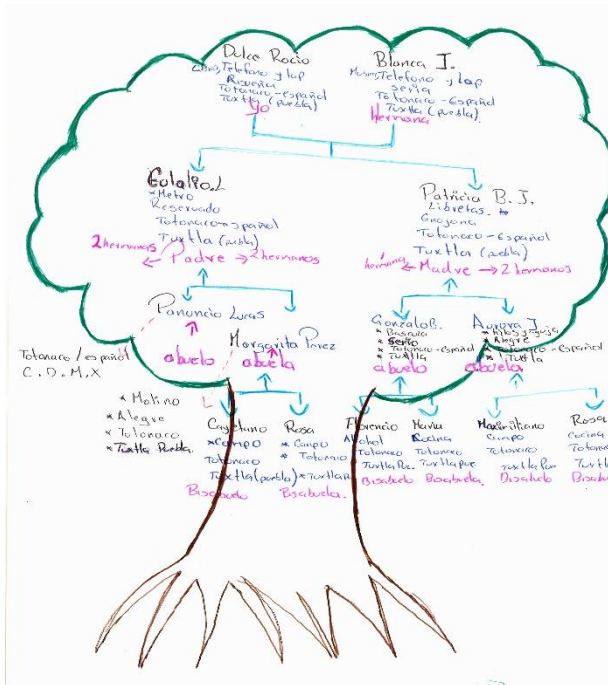 Dulce Rocio
Telefono y lap
Risueña
Totonaco-español
Tuxtla (puebla)
Yo
Blanca I.
Telefono y lap
seria
Totonaco-Español
Tuxtla (puebla)
hermana
Eulalio.L
*Metro
Reservado
Totonaco-español
Tuxtla (puebla)
2hermanas ← Padre → 2hermanos
Patricia B. J.
Libretas.
Enojona
Totonaco-Español
Tuxtla (puebla)
1 hermana ← Madre → 2 hermanos
Panuncio Lucas
abuelo
Totonaco/español
C.D.M.X
Margarita Perez
abuela
* Molino
* Alegre
* Totonaco
* Tuxtla Puebla.
Gonzalo B.
* Bascula
* Serio
* Totonaco-español
* Tuxtla
abuelo
Aurora J.
* Hilos y aguja
* Alegre
* Totonaco-Español
* Tuxtla
abuela
Cayetano
*Campo
Totonaco
Tuxtla(puebla)
Bisabuelo
Rosa
* Campo
* Totonaco
* Tuxtla
Bisabuela.
Florencio
Alcohol
Totonaco
Tuxtla Pue.
Bisabuelo
Maria
Cocina
Totonaco
Tuxtla Pue
Bisabuela.
Maximiliano
Campo
Totonaco
Tuxtla Pue
Bisabuelo
Rosa
Cocina
Totonac
Tuxtla
Bisabu